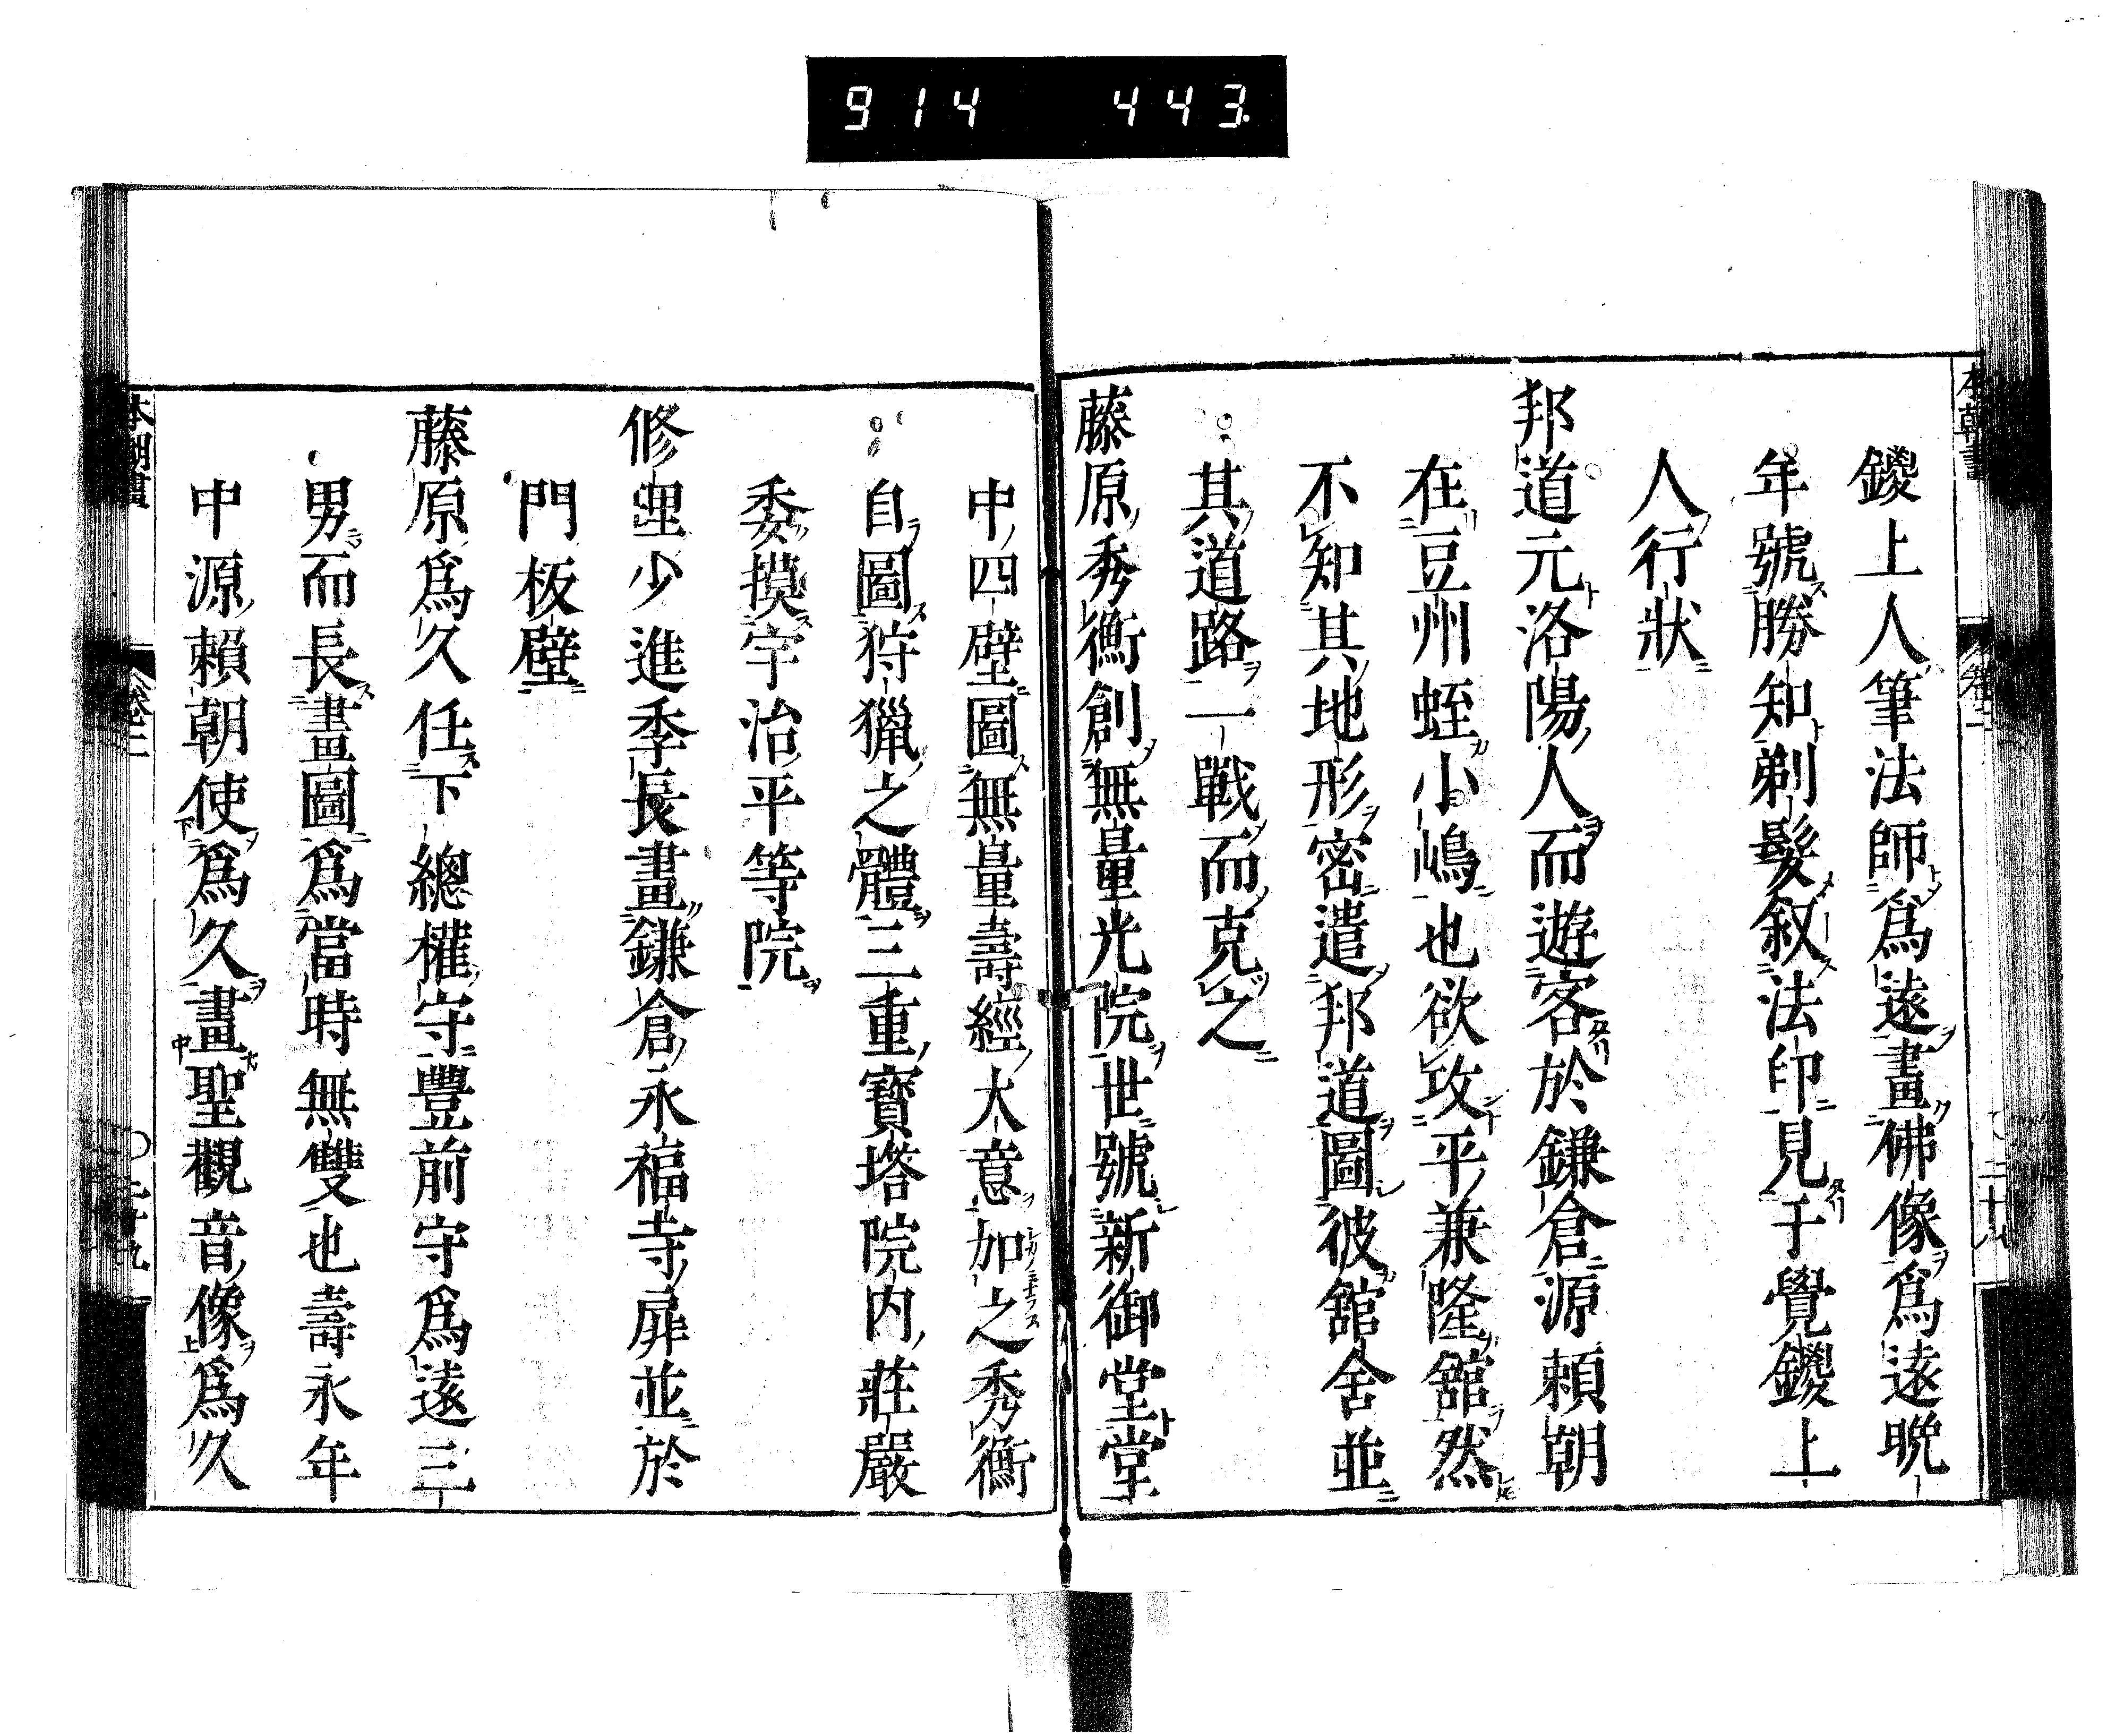 914 443.
鑁上人筆法師爲遠畫佛像爲遠晩
年號勝知剃髮叙法印見于覺鑁上
人行狀
邦道元洛陽人而遊客於鎌倉源頼朝
在豆州蛭小嶋也欲攻平兼隆舘然
不知其地形密遣邦道圖彼舘舍並
其道路一戰而克之
藤原秀衡創無量光院世號新御堂堂
中四壁圖無量壽經大意加之秀衡
自圖狩獵之體三重寳塔院内莊嚴
委摸宇治平等院
修理少進季長畫鎌倉永福寺扉並於
門板壁
藤原爲久任下總權守豐前守爲遠三
男而長畫圖爲當時無雙也壽永年
中源頼朝使爲久畫聖觀音像爲久
本朝畫